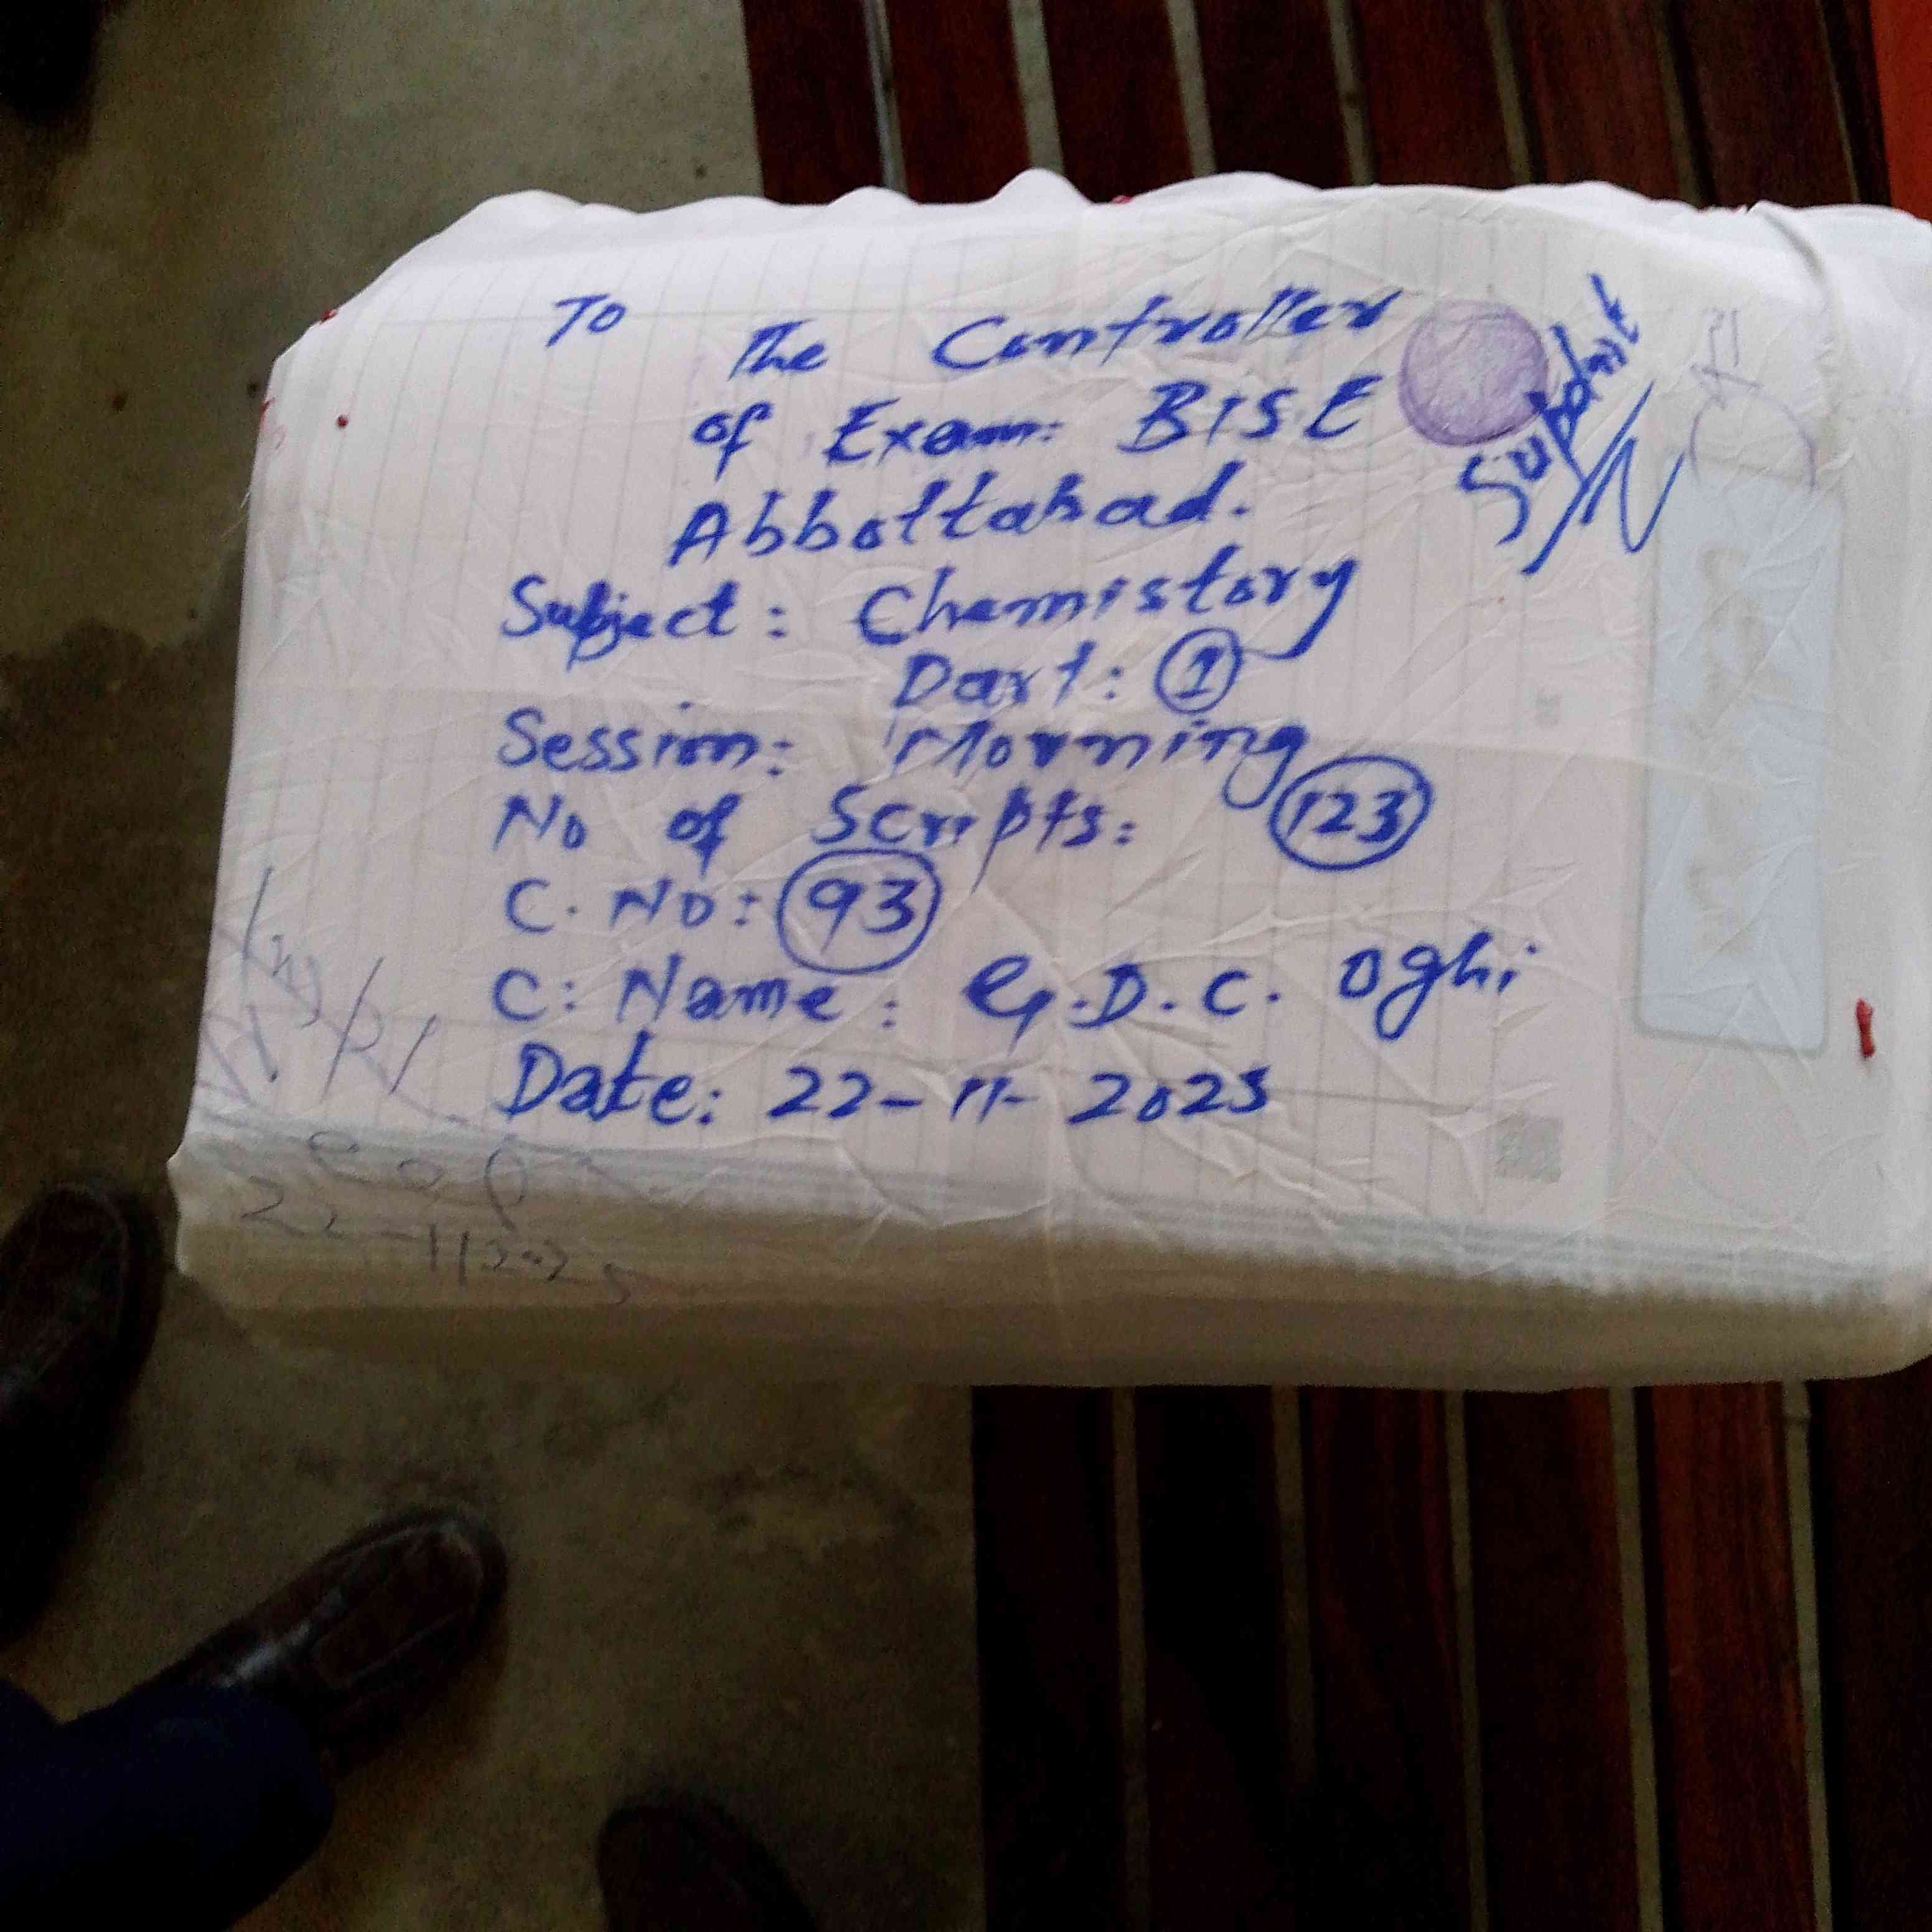 To
The Controller
of Exam: BISE
Abbottabad.
Supdnt
Subject: Chemistory
Part: 1
Session: Morning
No of Scripts: 123
C. No: 93
C: Name: G.D.C. Oghi
Date: 22-11-2025
22-11-2025